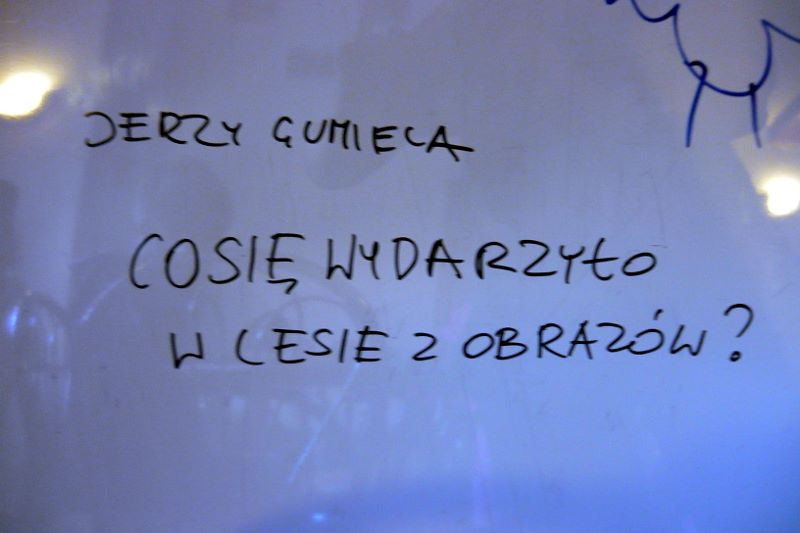 JERZY GUMIECA
CO SIĘ WYDARZYŁO
W LESIE Z OBRAZÓW?